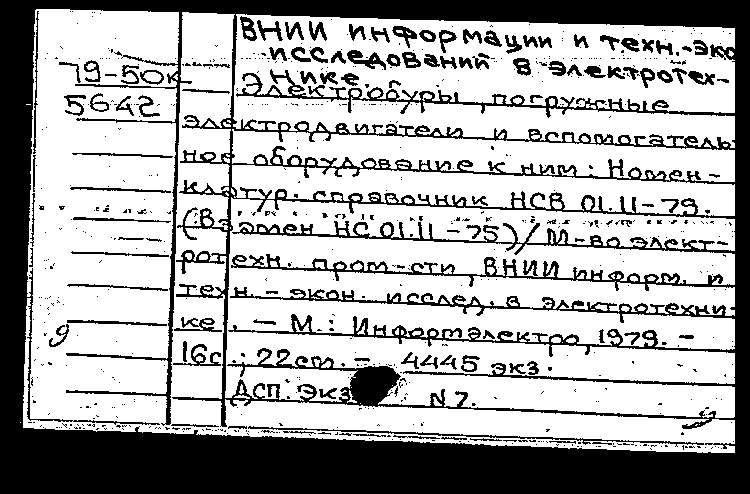 ВНИИ информации и техн.-эко
исследований в электротех-
нике
79-50к
5642
Электробуры, погружные
электродвигатели и вспомогатель
ное оборудование к ним: Номен-
клатур. справочник НСВ 01.11-79.
(Взамен НС 01.11-75)/М-во элект-
ротехн. пром-сти, ВНИИ информ. и
техн.-экон. исслед. в электротехни-
ке. - М.: Информэлектро, 1979. -
16с.; 22см. - 4445 экз.
ДСП. Экз N7.